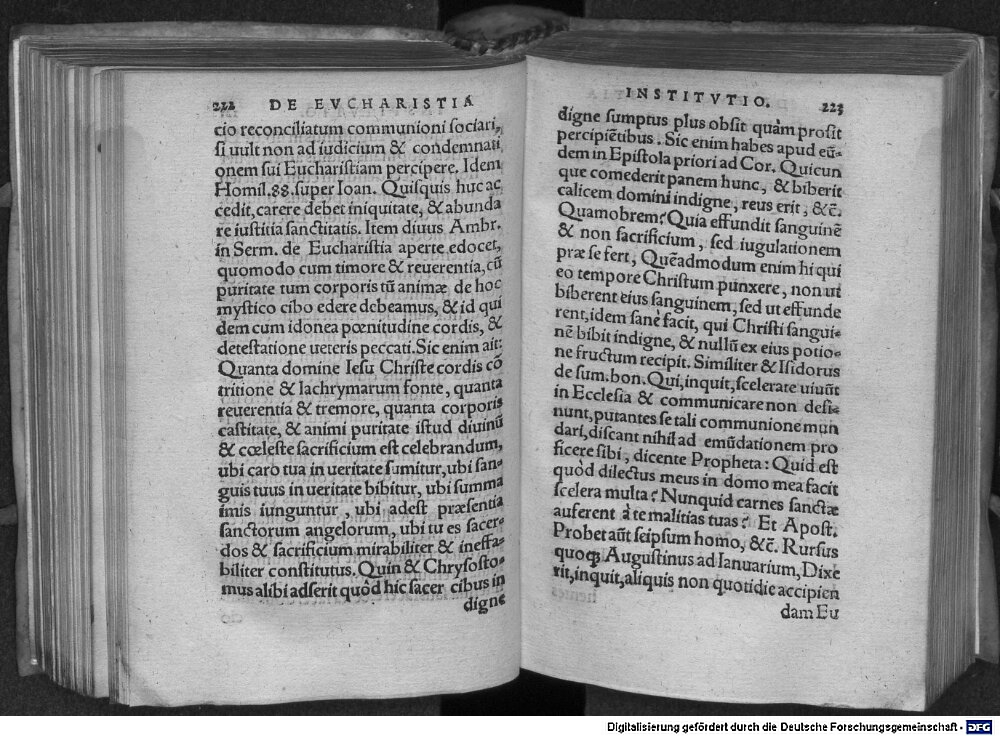 222 DE EVCHARISTIA
cio reconciliatum communioni sociari,
si uult non ad iudicium & condemnati
onem sui Eucharistiam percipere. Idem
Homil.88.super Ioan. Quisquis huc ac
cedit, carere debet iniquitate, & abunda
re iustitia sanctitatis. Item diuus Ambr.
in Serm. de Eucharistia aperte edocet,
quomodo cum timore & reuerentia, cũ
puritate tum corporis tũ animæ de hoc
mystico cibo edere debeamus, & id qui
dem cum idonea pœnitudine cordis, &
detestatione ueteris peccati. Sic enim ait:
Quanta domine Iesu Christe cordis cõ
tritione & lachrymarum fonte, quanta
reuerentia & tremore, quanta corporis
castitate, & animi puritate istud diuinũ
& cœleste sacrificium est celebrandum,
ubi caro tua in ueritate sumitur, ubi san-
guis tuus in ueritate bibitur, ubi summa
imis iunguntur, ubi adest præsentia
sanctorum angelorum, ubi tu es sacer-
dos & sacrificium mirabiliter & ineffa-
biliter constitutus. Quin & Chrysosto-
mus alibi adserit quòd hic sacer cibus in
digne
INSTITVTIO. 223
digne sumptus plus obsit quàm prosit
percipiẽtibus. Sic enim habes apud eũ-
dem in Epistola priori ad Cor. Quicun
que comederit panem hunc, & biberit
calicem domini indigne, reus erit, &c̃.
Quamobrem? Quia effundit sanguinẽ
& non sacrificium, sed iugulationem
præ se fert, Quẽadmodum enim hi qui
eo tempore Christum punxere, non ut
biberent eius sanguinem, sed ut effunde
rent, idem sanè facit, qui Christi sangui-
nẽ bibit indigne, & nullũ ex eius potio-
ne fructum recipit. Similiter & Isidorus
de sum. bon. Qui, inquit, scelerate uiuũt
in Ecclesia & communicare non desi-
nunt, putantes se tali communione mun
dari, discant nihil ad emũdationem pro
ficere sibi, dicente Propheta: Quid est
quòd dilectus meus in domo mea facit
scelera multa? Nunquid carnes sanctæ
auferent à te malitias tuas? Et Apost.
Probet aũt seipsum homo, &c̃. Rursus
quoqꝫ Augustinus ad Ianuarium, Dixe
rit, inquit, aliquis non quotidie accipien
dam Eu
Digitalisierung gefördert durch die Deutsche Forschungsgemeinschaft - DFG